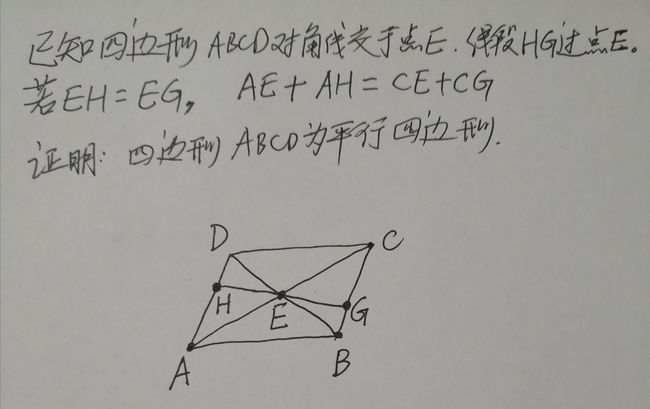 已知四边形ABCD对角线交于点E.线段HG过点E。
若EH=EG, AE+AH=CE+CG
证明:四边形ABCD为平行四边形.
D
C
H
E
G
A
B